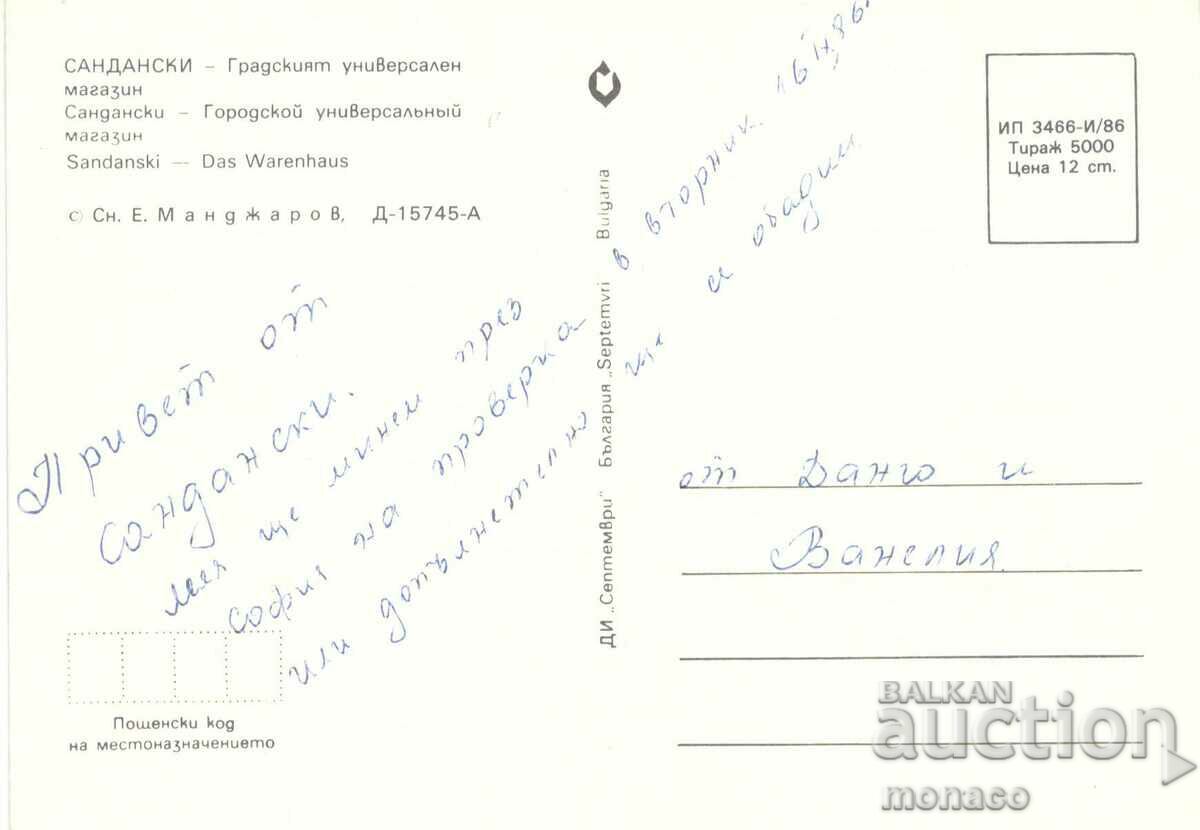 САНДАНСКИ – Градският универсален
магазин
Сандански – Городской универсальный
магазин
Sandanski — Das Warenhaus
© Сн. Е. Манджаров, Д-15745-А
ИП 3466-И/86
Тираж 5000
Цена 12 ст.
Привет от
Сандански.
ще минем през
София на проверка в вторник 16 IX 86
или допълнетелно ще се обадим
ДИ „Септември" България „Septemvri" Bulgaria
от Данчо и
Ванелия
Пощенски код
на местоназначението
BALKAN
auction
monaco